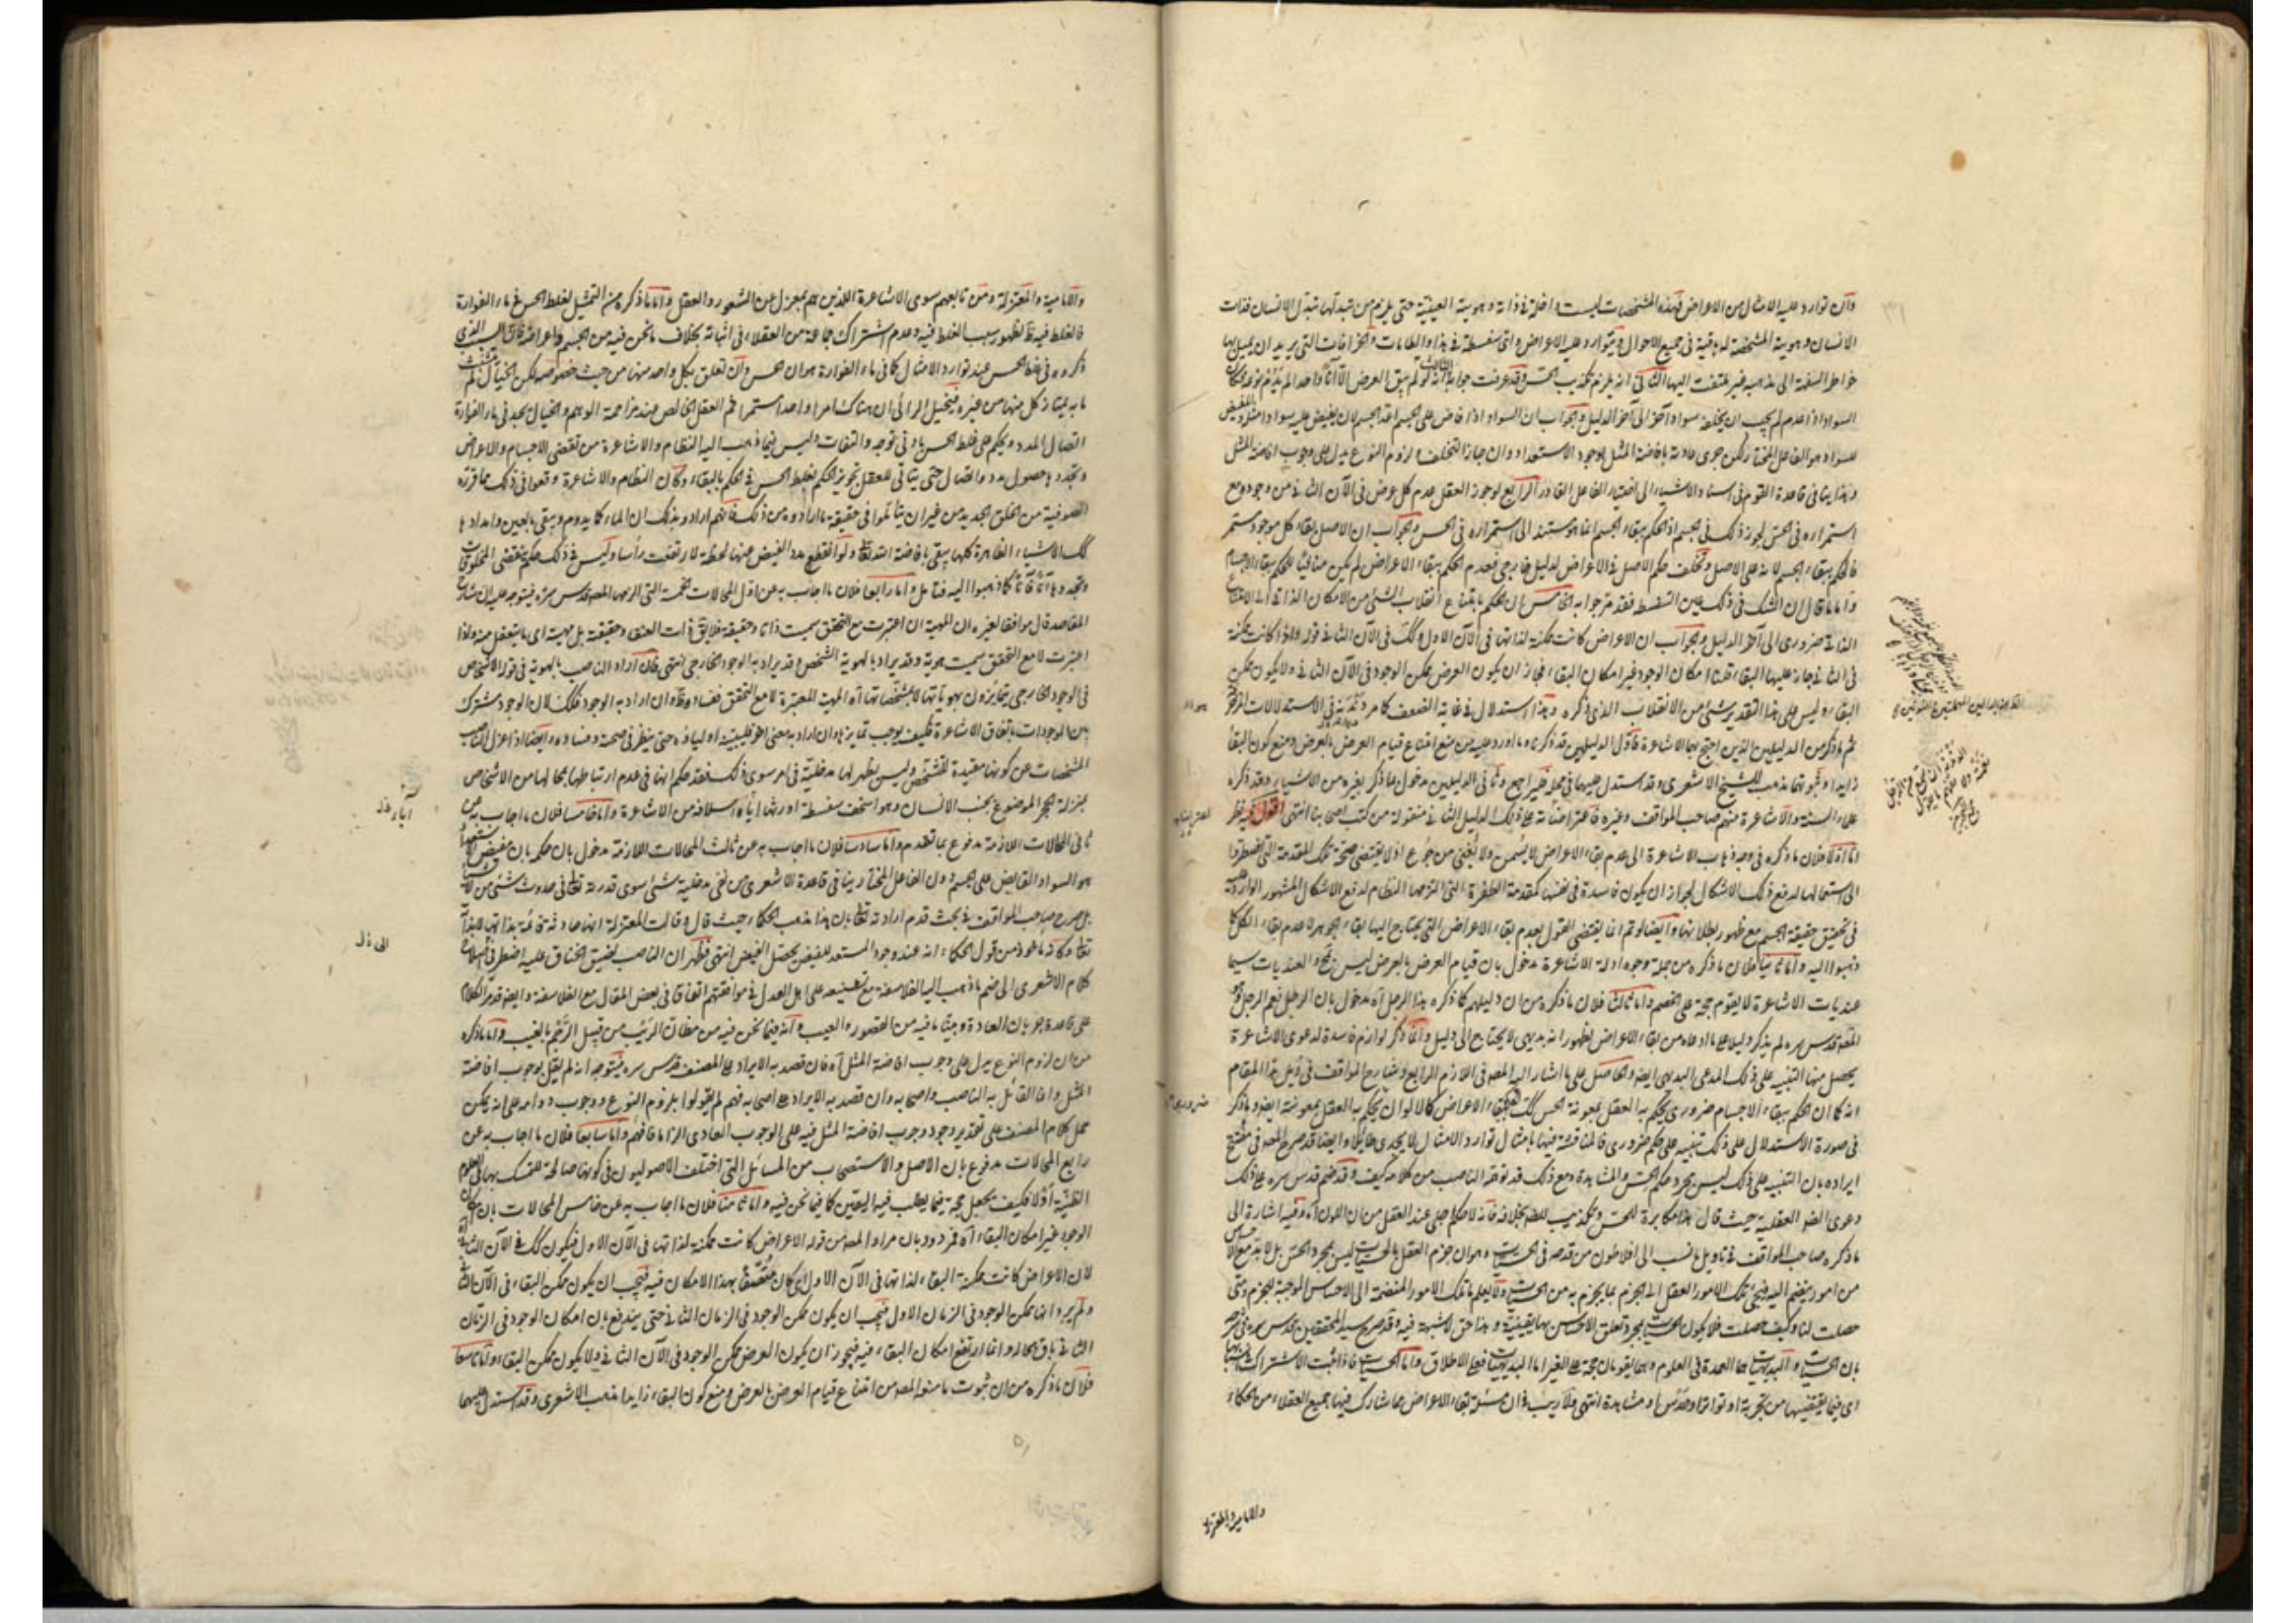 وان توارد عليه الامثال من الاعراض فهذه المشخصات ليست داخلة في ذاته وهويته العينية حتى يلزم من تبدلها تبدل الانسان فذات
الانسان وهويته المشخصة له باقية في جميع الاحوال ويتوارد عليه الاعراض والتي سفسطة في هذا والطامات والخرافات التي يريد ان يميل بها
خواطر السفهة الى مذهبه غير ملتفت اليها الثاني انه يلزم تكذيب الحس وقد عرفت جوابه الثالث انه لو لم يبق العرض الا آنا واحدا لم يلزم نوعه فكان
السواد اذا عدم لم يجب ان يخلفه سواد آخر الى آخر الدليل والجواب ان السواد اذا فاض على الجسم اعد الجسم لان يفيض عليه سواد مثله والمفيض
للسواد هو الفاعل المختار لكن جرى عادته بافاضة المثل لوجود الاستعداد وان جاز التخلف ولزوم النوع يدل على وجوب افاضة المثل
وهذا ينافي قاعدة القوم في اسناد الاشياء الى اختيار الفاعل القادر الرابع لو جوز العقل عدم كل عرض في الآن الثاني من وجوده مع
استمراره في الحس لجوز ذلك في الجسم اذ الحكم ببقاء الجسم انما هو مستند الى استمراره في الحس والجواب ان الاصل بقاء كل موجود مستمر
فالحكم ببقاء الجسم لانه على الاصل وتخلف حكم الاصل في الاعراض لدليل خارجي فعدم الحكم ببقاء الاعراض لم يكن منافيا للحكم ببقاء الاجسام
واما ما قال ان الشك في ذلك عين التسفسط فقد مر جوابه الخامس ان الحكم بامتناع انقلاب الشئ من الامكان الذاتي الى الامتناع
الذاتي ضروري الى آخر الدليل والجواب ان الاعراض كانت ممكنة لذاتها في الآن الاول وكذلك في الآن الثاني قوله واذا كانت ممكنة
في الثاني جاز عليها البقاء قلنا امكان الوجود غير امكان البقاء فجاز ان يكون العرض ممكن الوجود في الآن الثاني ولا يكون ممكن
البقاء وليس على هذا التقدير شئ من الانقلاب الذي ذكره وهذا استدلال في غاية الضعف كما مر
ثم ما ذكر من الدليلين الذين احتج بهما الاشاعرة فاول الدليلين قد ذكرناه وما اورد عليه من منع امتناع قيام العرض بالعرض ومنع كون البقاء
زايدا وثبوتهما مذهب للشيخ الاشعري وقد استدل عليهما في محله فليراجع وثاني الدليلين مدخول بما ذكر بغيره من الاشياء وقد ذكره
علماء السنة والاشاعرة منهم صاحب المواقف وغيره فاعتراضاته على ذلك الدليل الثاني منقولة من كتب اصحابنا انتهى اقول فيه نظر
اما اولا فلان ما ذكره في وجه ذهاب الاشاعرة الى عدم بقاء الاعراض لا يسمن ولا يغني من جوع اذ لا يقتضي صحة تلك المقدمة التي اضطروا
الى استعمالها لدفع ذلك الاشكال لجواز ان يكون فاسدة في نفسها كمقدمة الطفرة التي التزمها النظام لدفع الاشكال المشهور الوارد عليه
في تحقيق حقيقة الجسم مع ظهور بطلانها وايضا لو تم انما يقتضي القول بعدم بقاء الاعراض التي يحتاج اليها بقاء الجوهر لا عدم بقاء الكل كما
ذهبوا اليه واما ثانيا فلان ما ذكره من جملة وجوه ادلة الاشاعرة مدخول بان قيام العرض بالعرض ليس
عنديات الاشاعرة لا يقوم حجة على الخصم واما ثالثا فلان ما ذكره من ان دليلهم كما ذكره هذا الرجل آه مدخول بان الرجل نعم الرجل هو
المصنف قدس سره لم يذكر دليلا على ما ادعاه من بقاء الاعراض لظهور انه بديهي لا يحتاج الى دليل وانما ذكر لوازم فاسدة لدعوى الاشاعرة
يحصل منها التنبيه على ذلك المدعى البديهي ايضا والحاصل على ما اشار اليه المصنف في اللازم الرابع وشارح المواقف في ذيل هذا المقام
انه كما ان الحكم ببقاء الاجسام ضروري يحكم به العقل بمعونة الحس كذلك الحكم ببقاء الاعراض كالالوان يحكم به العقل بمعونته ايضا وما ذكر
في صورة الاستدلال على ذلك تنبيه على حكم ضروري فالمناقشة فيها بامثال توارد الامثال لا يجدي طائلا وايضا قد صرح المصنف في مفتتح
ايراده بان التنبيه على ذلك ليس بمجرد حكم الحس والمشاهدة ومع ذلك قد توهمه الناصب من كلامه كيف وقد ضم قدس سره على ذلك
دعوى الضرورة العقلية حيث قال هذا مكابرة للحس وتكذيب للضرورة بخلافه فانه لا حكم جلي عند العقل من ان اللون آه وفيه اشارة الى
ما ذكره صاحب المواقف في تاويل ما نسب الى افلاطون من قدحه في الحسيات وهو ان جزم العقل بالحسيات ليس بمجرد الحس بل لا بد مع الاحساس
من امور ينضم اليه فيلجئ تلك الامور العقل الى الجزم بما يجزم به من الحسيات ولا يعلم ما تلك الامور المنضمة الى الاحساس الموجبة للجزم ومتى
حصلت لنا وكيف حصلت فلا يكون الحسيات بمجرد تعلق الاحساس بها يقينية وهذا حق لا شبهة فيه وقد صرح سيد المحققين قدس سره في شرحه
بان الحسيات والبديهيات هما العمدة في العلوم وهما يقومان حجة على الغير اما البديهيات فعلى الاطلاق واما الحسيات فاذا ثبت الاشتراك في اسبابها
اي فيما يقتضيها من تجربة او تواتر او حدس او مشاهدة انتهى ولا ريب في ان مسئلة بقاء الاعراض مما شارك فيها جميع العقلاء من الحكماء
والامامية والمعتزلة
والامامية والمعتزلة ومن تابعهم سوى الاشاعرة الذين هم بمعزل عن الشعور والعقل واما ما ذكره من التمثيل لغلط الحس في ماء الفوارة
فالغلط فيه ظ لظهور سبب الغلط فيه وعدم اشتراك جماعة من العقلاء في اثباته بخلاف ما نحن فيه من الجسم واعراضه فان السبب الذي
ذكروه في غلط الحس عند توارد الامثال كما في ماء الفوارة هو ان الحس وان تعلق بكل واحد منها من حيث خصوصه لكن الخيال لم يستثبت
ما به يمتاز كل منها من غيره فيتخيل الرائي ان هناك امرا واحدا مستمرا ثم العقل الخالص عند مزاحمة الوهم والخيال يجد في ماء الفوارة
اتصال المدد ويحكم على غلط الحس بادنى توجه والتفات وليس فيما ذهب اليه النظام والاشاعرة من تقضي الاجسام والاعراض
وتجددها حصول مدد واتصال حتى يتاتى للعقل تجويز الحكم بغلط الحس في الحكم بالبقاء وكان النظام والاشاعرة وقعوا في ذلك مما قرره
الصوفية من الخلق الجديد من غير ان يتأملوا في حقيقة ما ارادوه من ذلك فانهم ارادوا بذلك ان الماء كما يدوم ويبقى بالعين وامدادها
كذلك الاشياء الظاهرة كلها يبقى بافاضة الله تعالى ولو انقطع مدد الفيض عنها لحظة لارتفعت رأسا وليس في ذلك حكم بتقضي المخلوقات
وتجددها آنا فآنا كما ذهبوا اليه فتامل واما رابعا فلان ما اجاب به عن اول المحالات الخمسة التي الزمها المصنف قدس سره فيتوجه عليه ان شارح
المقاصد قال موافقا لغيره ان المهية ان اعتبرت مع التحقق سميت ذاتا وحقيقة فلا يقال ذات العنقاء وحقيقته بل مهيته اي ما يتعقل منه واذا
اعتبرت لا مع التحقق سميت هوية وقد يراد بالهوية التشخص وقد يراد به الوجود الخارجي انتهى فان اراد الناصب بالهوية في قوله الاشخاص
في الوجود الخارجي يتمايزون بهوياتها لا بمشخصاتها آه المهية المعتبرة لا مع التحقق ففساده ظ وان اراد به الوجود فكذلك لان الوجود مشترك
بين الموجودات باتفاق الاشاعرة فكيف يوجب تمايزها وان اراد به معنى آخر فليبينه اولياؤه حتى ينظر في صحته وفساده وايضا اذا عزل الناصب
المشخصات عن كونها مفيدة للتشخص وليس يظهر لها مدخلية في امر سوى ذلك فقد حكم انها في عدم ارتباطها بمحالها من الاشخاص
بمنزلة الحجر الموضوع بجنب الانسان وهو اسخف سفسطة اورثها اياه اسلافه من الاشاعرة واما خامسا فلان ما اجاب به عن
ثاني المحالات اللازمة مدفوع بما تقدم واما سادسا فلان ما اجاب به عن ثالث المحالات اللازمة مدخول بان حكمه بان مفيض
هو السواد الفايض على الجسم دون الفاعل المختار ينافي قاعدة الاشعري من نفي مدخلية شئ سوى قدرته تعالى في حدوث شئ من الاشياء
بل صرح صاحب المواقف في بحث قدم ارادته تعالى بان هذا مذهب الحكماء حيث قال وقالت المعتزلة انها حادثة قائمة بذاتها لا بذاته
تعالى وكانه ماخوذ من قول الحكماء انه عند وجود المستعد للفيض يحصل الفيض انتهى فظهر ان الناصب لضيق الخناق عليه اضطر في اصلاح
كلام الاشعري الى ضم ما ذهب اليه الفلاسفة مع تشنيعه على اهل العدل في موافقتهم اتفاقا في بعض المقال مع الفلاسفة وايضا قد مر الكلام
على قاعدة جريان العادة وبينا ما فيه من القصور والعيب وانه فيما نحن فيه من مظان الريب من قبيل الرجم بالغيب واما ما ذكره
من ان لزوم النوع يدل على وجوب افاضة المثل آه فان قصد به الايراد على المصنف قدس سره فيتوجه انه لم يقل بوجوب افاضة
المثل وانما القائل به الناصب واصحابه وان قصد به الايراد على اصحابه فهم لم يقولوا بلزوم النوع ووجوب دوامه على انه يمكن
حمل كلام المصنف على تقدير وجود وجوب افاضة المثل فيه على الوجوب العادي الزاما فافهم واما سابعا فلان ما اجاب به عن
رابع المحالات مدفوع بان الاصل والاستصحاب من المسائل التي اختلف الاصوليون في كونها صالحة للتمسك بها في العلوم
الظنية اولا فكيف يجعل حجة فيما يطلب فيه اليقين كما فيما نحن فيه واما ثامنا فلان ما اجاب به عن خامس المحالات بان امكان
الوجود غير امكان البقاء آه فمردود بان مراد المصنف من قوله الاعراض كانت ممكنة لذاتها في الآن الاول فيكون كذلك في الآن الثاني
لان الاعراض كانت ممكنة البقاء لذاتها في الآن الاول اي كان متصفا بهذا الامكان فيه فيجب ان يكون ممكن البقاء في الآن الثاني
ولم يرد انها ممكن الوجود في الزمان الاول فيجب ان يكون ممكن الوجود في الزمان الثاني حتى يندفع بان امكان الوجود في الزمان
الثاني باق بحاله وانما ارتفع امكان البقاء فيه فيجوز ان يكون العرض ممكن الوجود في الآن الثاني ولا يكون ممكن البقاء واما تاسعا
فلان ما ذكره من ان ثبوت ما منعه المصنف من امتناع قيام العرض بالعرض ومنع كون البقاء زايدا مذهب الاشعري وقد استدل عليهما